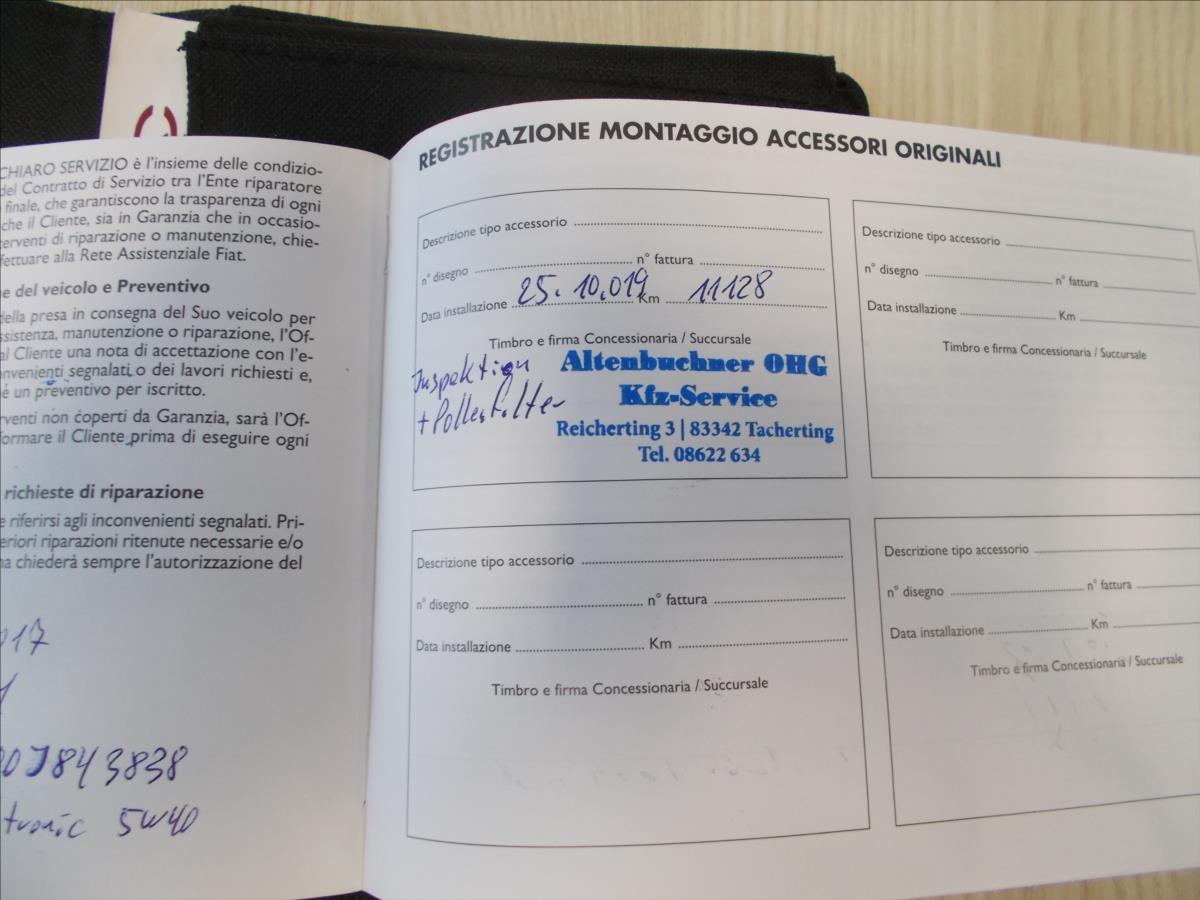 CHIARO SERVIZIO è l'insieme delle condizio-
del Contratto di Servizio tra l'Ente riparatore
finale, che garantiscono la trasparenza di ogni
che il Cliente, sia in Garanzia che in occasio-
erventi di riparazione o manutenzione, chie-
fettuare alla Rete Assistenziale Fiat.
e del veicolo e Preventivo
della presa in consegna del Suo veicolo per
ssistenza, manutenzione o riparazione, l'Of-
al Cliente una nota di accettazione con l'e-
nvenienti segnalati o dei lavori richiesti e,
é un preventivo per iscritto.
venti non coperti da Garanzia, sarà l'Of-
formare il Cliente prima di eseguire ogni
richieste di riparazione
e riferirsi agli inconvenienti segnalati. Pri-
eriori riparazioni ritenute necessarie e/o
na chiederà sempre l'autorizzazione del
017
0J843838
tronic 5W40
REGISTRAZIONE MONTAGGIO ACCESSORI ORIGINALI
Descrizione tipo accessorio
n° disegno n° fattura
Data installazione 25.10.019 Km 11128
Timbro e firma Concessionaria / Succursale
Inspektion
+ Pollenfilter
Altenbuchner OHG
Kfz-Service
Reicherting 3 | 83342 Tacherting
Tel. 08622 634
Descrizione tipo accessorio
n° disegno n° fattura
Data installazione Km
Timbro e firma Concessionaria / Succursale
Descrizione tipo accessorio
n° disegno n° fattura
Data installazione Km
Timbro e firma Concessionaria / Succursale
Descrizione tipo accessorio
n° disegno n° fattura
Data installazione Km
Timbro e firma Concessionaria / Succursale